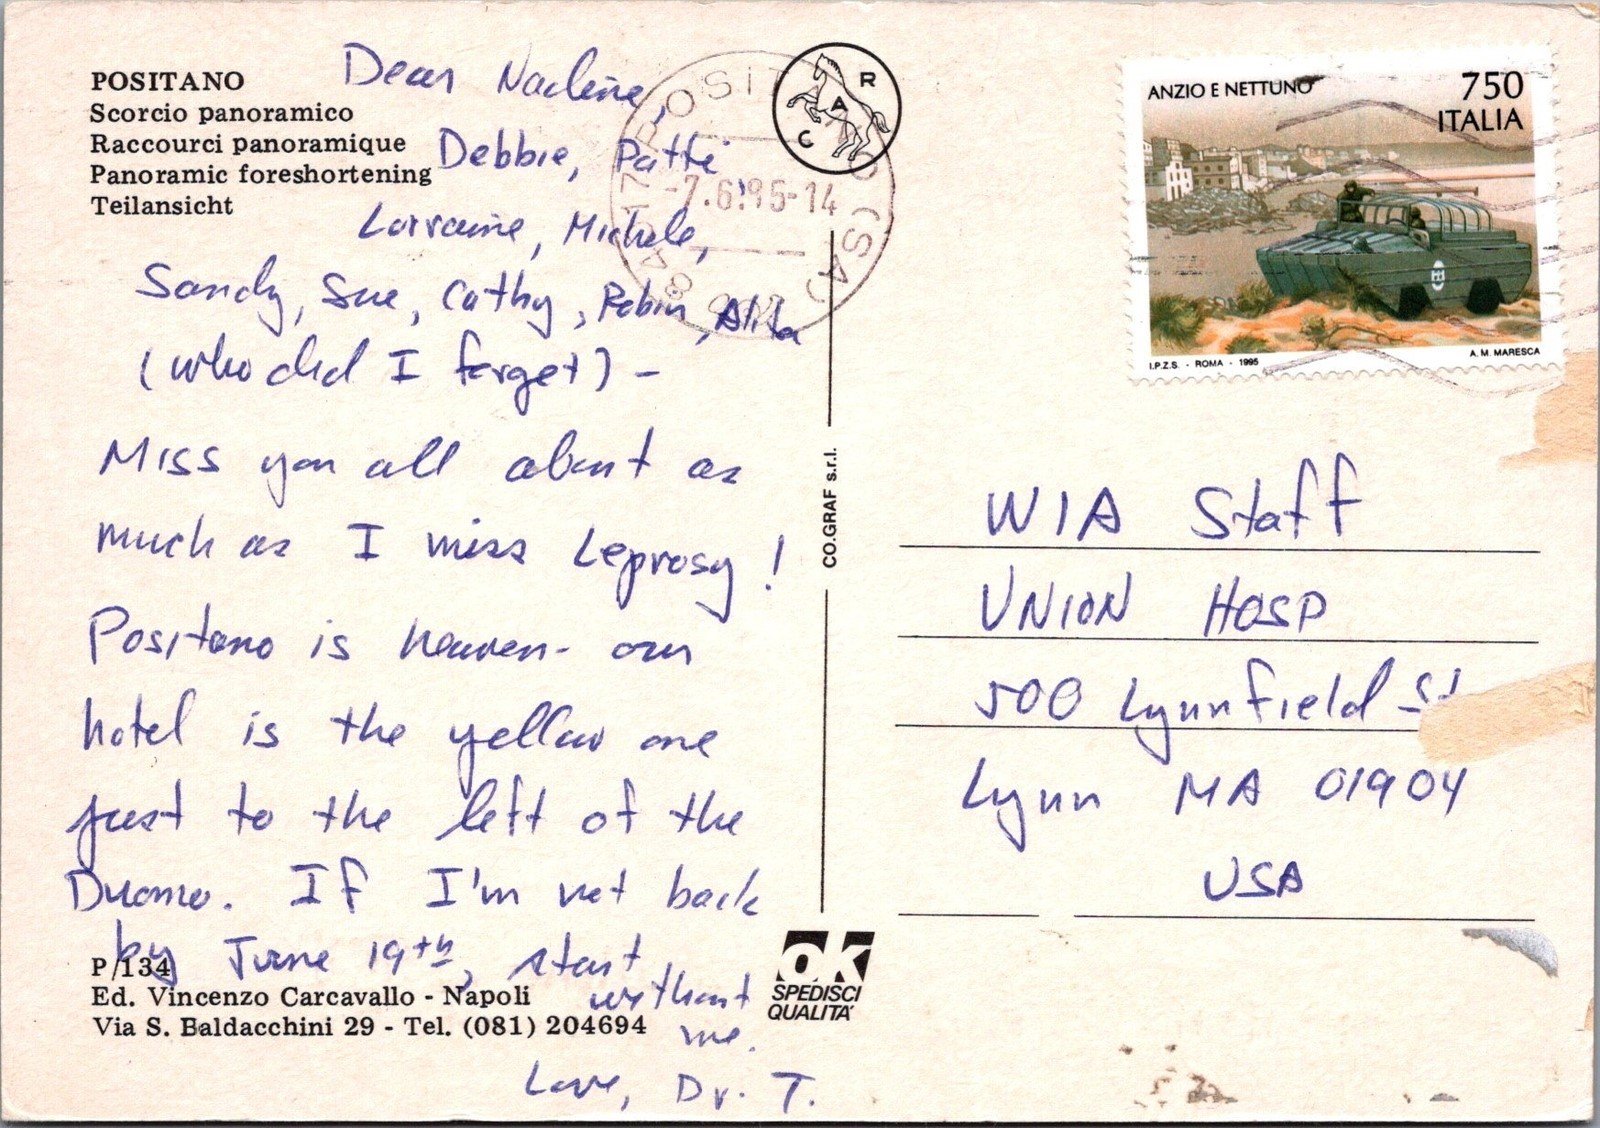 POSITANO
Scorcio panoramico
Raccourci panoramique
Panoramic foreshortening
Teilansicht
Dear Nadine,
Debbie, Patti
Lorraine, Michele,
Sandy, Sue, Cathy, Robin,
(who did I forget) –
Miss you all about as
much as I miss Leprosy!
Positano is heaven- our
hotel is the yellow one
just to the left of the
Duomo. If I'm not back
by June 19th, start
without
me.
Love, Dr. T.
P/134
Ed. Vincenzo Carcavallo - Napoli
Via S. Baldacchini 29 - Tel. (081) 204694
R
A
C
84017 POSITANO (SA)
-7.6.95-14
CO.GRAF s.r.l.
OK
SPEDISCI
QUALITÀ
ANZIO E NETTUNO
750
ITALIA
I.P.Z.S. - ROMA - 1995
A. M. MARESCA
WIA Staff
UNION HOSP
500 Lynnfield St
Lynn MA 01904
USA